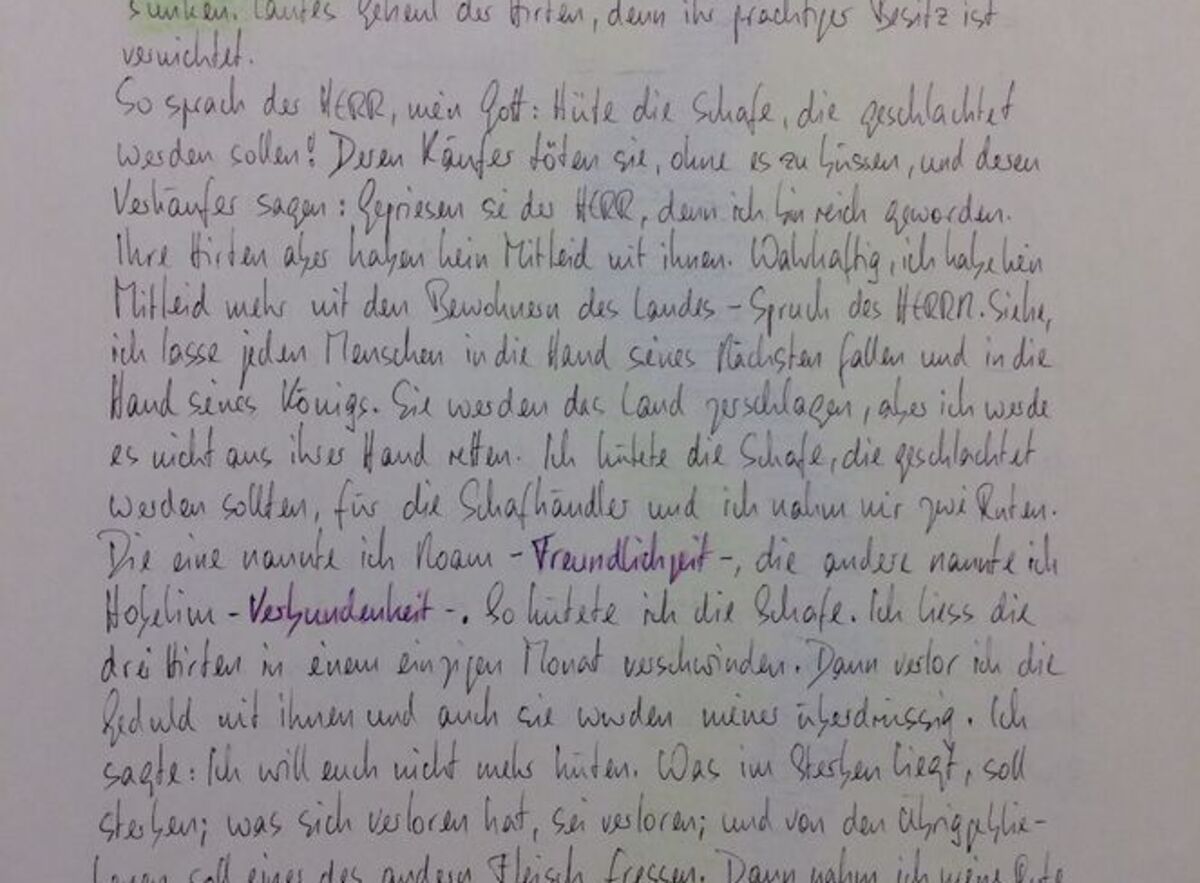 sunken. Lautes Geheul der Hirten, denn ihr prächtiger Besitz ist
vernichtet.
So sprach der HERR, mein Gott: Hüte die Schafe, die geschlachtet
werden sollen! Deren Käufer töten sie, ohne es zu büssen, und deren
Verkäufer sagen: Gepriesen sei der HERR, denn ich bin reich geworden.
Ihre Hirten aber haben kein Mitleid mit ihnen. Wahrhaftig, ich habe kein
Mitleid mehr mit den Bewohnern des Landes - Spruch des HERRN. Siehe,
ich lasse jeden Menschen in die Hand seines Nächsten fallen und in die
Hand seines Königs. Sie werden das Land zerschlagen, aber ich werde
es nicht aus ihrer Hand retten. Ich hütete die Schafe, die geschlachtet
werden sollten, für die Schafhändler und ich nahm mir zwei Ruten.
Die eine nannte ich Noam - Freundlichkeit -, die andere nannte ich
Hobelim - Verbundenheit -. So hütete ich die Schafe. Ich liess die
drei Hirten in einem einzigen Monat verschwinden. Dann verlor ich die
Geduld mit ihnen und auch sie wurden meiner überdrüssig. Ich
sagte: Ich will euch nicht mehr hüten. Was im Sterben liegt, soll
sterben; was sich verloren hat, sei verloren; und von den Übriggeblie-
benen soll einer des andern Fleisch fressen. Dann nahm ich meine Rute